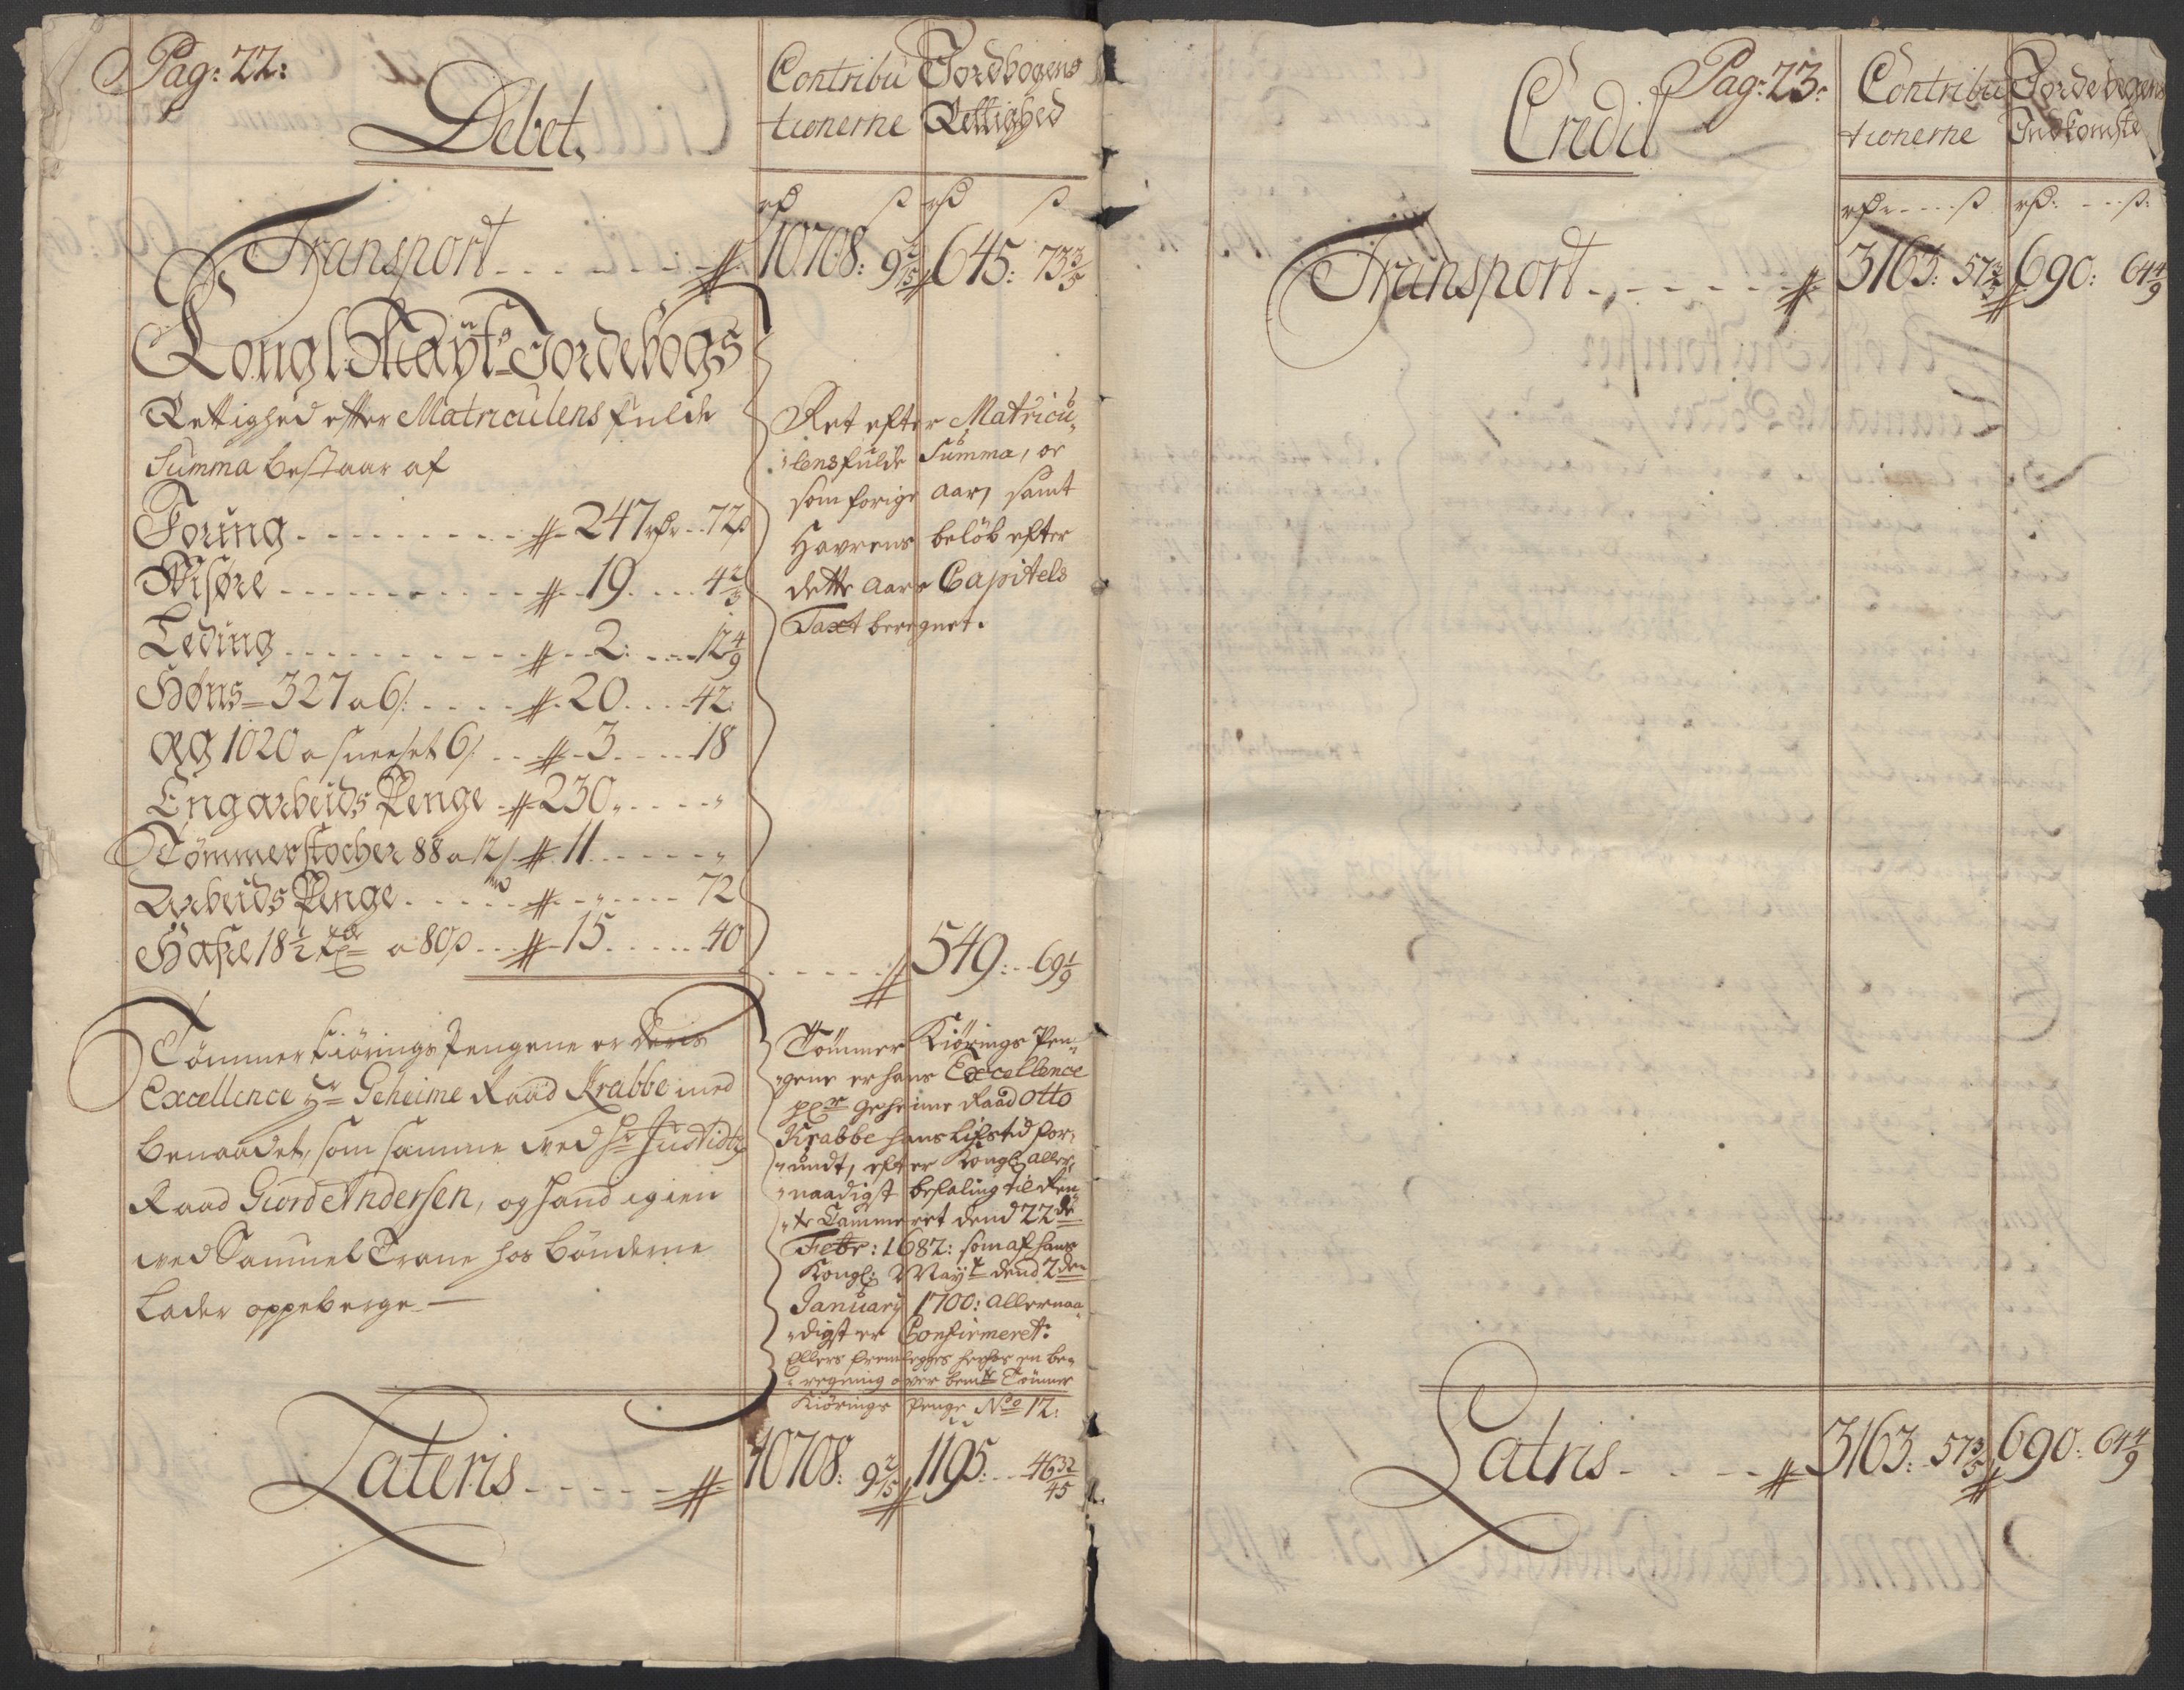 Pag: 22:
Debet,
Contribu
tionerne
Jordbogens
Rettighed
rdr ß rdr ß
Transport - - - - - - 10708: 9 2/5 645: 73 3/5
Kongl. Mayts Jordebogs
Rettighed efter Matriculens fulde
Summa bestaar af
Foring - - - - - - - - 247 rdr - 72 ß
Wisøre - - - - - - - - 19 - - - 4 2/3
Leding - - - - - - - - 2: - - - 12 4/9
Høns = 327 a 6 ß: - - - - 20 - - - 42:
Æg 1020 a sneeset 6 ß - - 3 - - - 18
Engarbeids Penge - 230 „ - - - „
Tømmerstocher 88 a 12 ß - 11 - - - - „
Arbeids Penge - - - - - „ - - - 72
Hafre 18 1/2 tdr a 80 ß - - - 15 - - - 40
Ret efter Matricu„
„lens fulde Summa, or
som forige aar, samt
Havrens beløb efter
dette aars Capitels
Taxt beregnet.
- - - - - 549: - 69 1/9
Tømmer Kiørings Pengene er Deris
Excellence Hr Geheime Raad Krabbe med
benaadet, som samme ved Hr Justidtz
Raad Giord Andersen, og hand igien
ved Samuel Trane hos bønderne
lader oppeberge —
Tømmer Kiørings Pen„
„gene er hans Excellence
Hr Geheime Raad Otto
Krabbe hans Lifstid for„
„undt, efter Kongl aller„
„naadigst befaling til Ren„
„te Cammeret dend 22de
Febr: 1682: som af hans
Kongl: Mayt dend 2den
January 1700: allernaa„
„digst er Confirmeret:
Ellers fremlegges herhos en be„
„regning over bemte Tømmer
Kiørings Penge No 12:
Lateris - - - - - 10708: 9 2/5 1195: - 46 32/45
Pag: 23:
Credit
Contribu
tionerne
Jordebogens
Indkomste
rdr - - - ß rdr: - - ß:
Transport - - - - - - 3163: 57 3/5 690: 64 4/9
Latris - - - - 3163: 57 3/5 690: 64 4/9